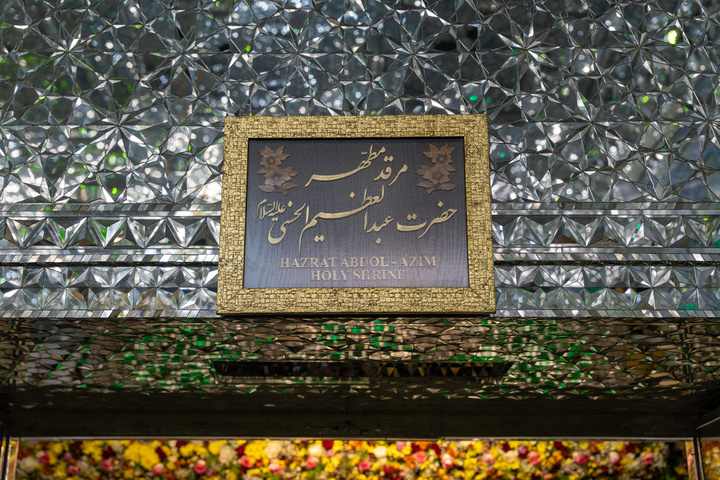 مرقد مطهر
حضرت عبدالعظیم الحسنی علیه‌السلام
HAZRAT ABDOL - AZIM
HOLY SHRINE